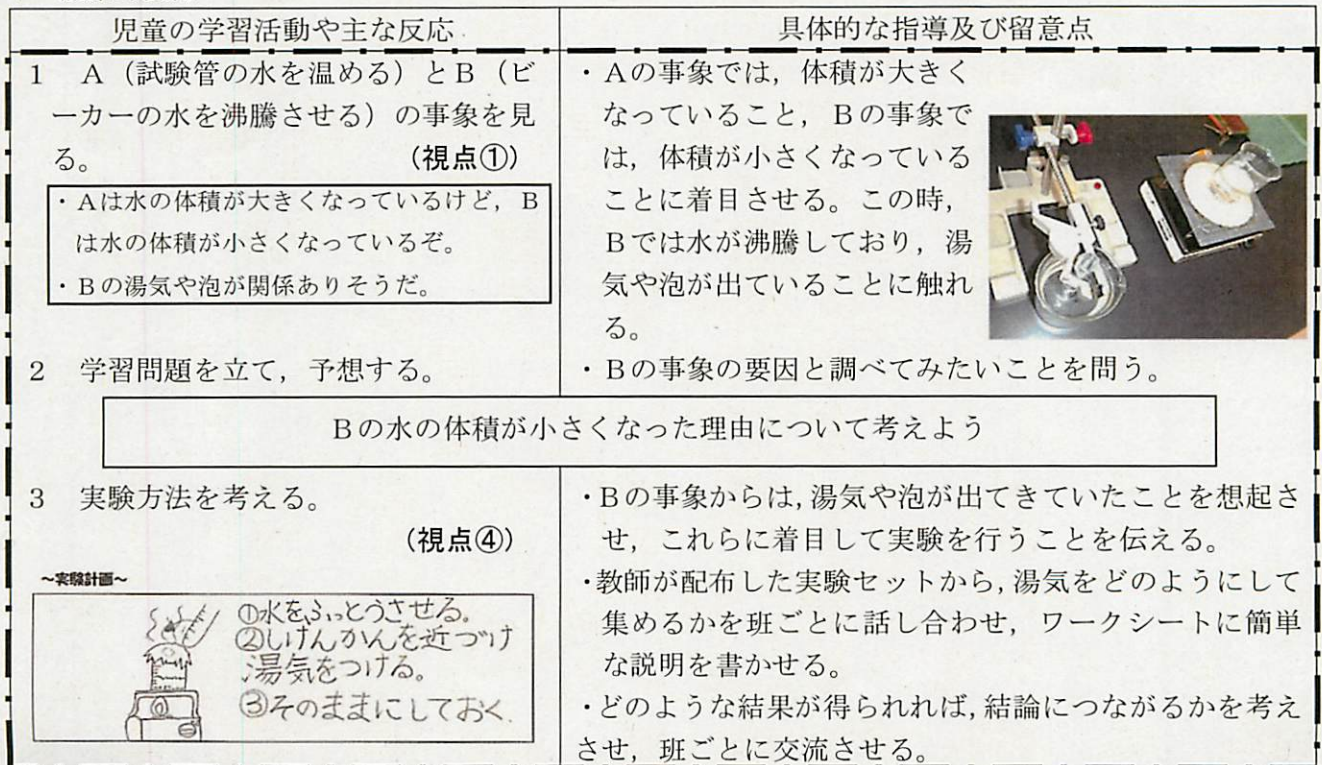 児童の学習活動や主な反応
具体的な指導及び留意点
1 A（試験管の水を温める）とB（ビ
ーカーの水を沸騰させる）の事象を見
る。 （視点①）
・Aは水の体積が大きくなっているけど，B
は水の体積が小さくなっているぞ。
・Bの湯気や泡が関係ありそうだ。
・Aの事象では，体積が大きく
なっていること，Bの事象で
は，体積が小さくなっている
ことに着目させる。この時，
Bでは水が沸騰しており，湯
気や泡が出ていることに触れ
る。
2 学習問題を立て，予想する。
・Bの事象の要因と調べてみたいことを問う。
Bの水の体積が小さくなった理由について考えよう
3 実験方法を考える。
（視点④）
～実験計画～
①水をふっとうさせる。
②しけんかんを近づけ
湯気をつける。
③そのままにしておく．
・Bの事象からは，湯気や泡が出てきていたことを想起さ
せ，これらに着目して実験を行うことを伝える。
・教師が配布した実験セットから，湯気をどのようにして
集めるかを班ごとに話し合わせ，ワークシートに簡単
な説明を書かせる。
・どのような結果が得られれば，結論につながるかを考え
させ，班ごとに交流させる。